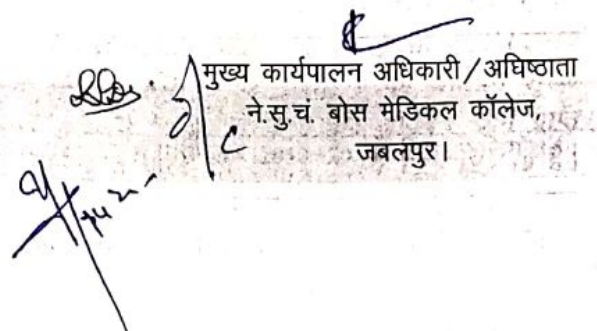 मुख्य कार्यपालन अधिकारी/अधिष्ठाता
ने.सु.चं. बोस मेडिकल कॉलेज,
जबलपुर।